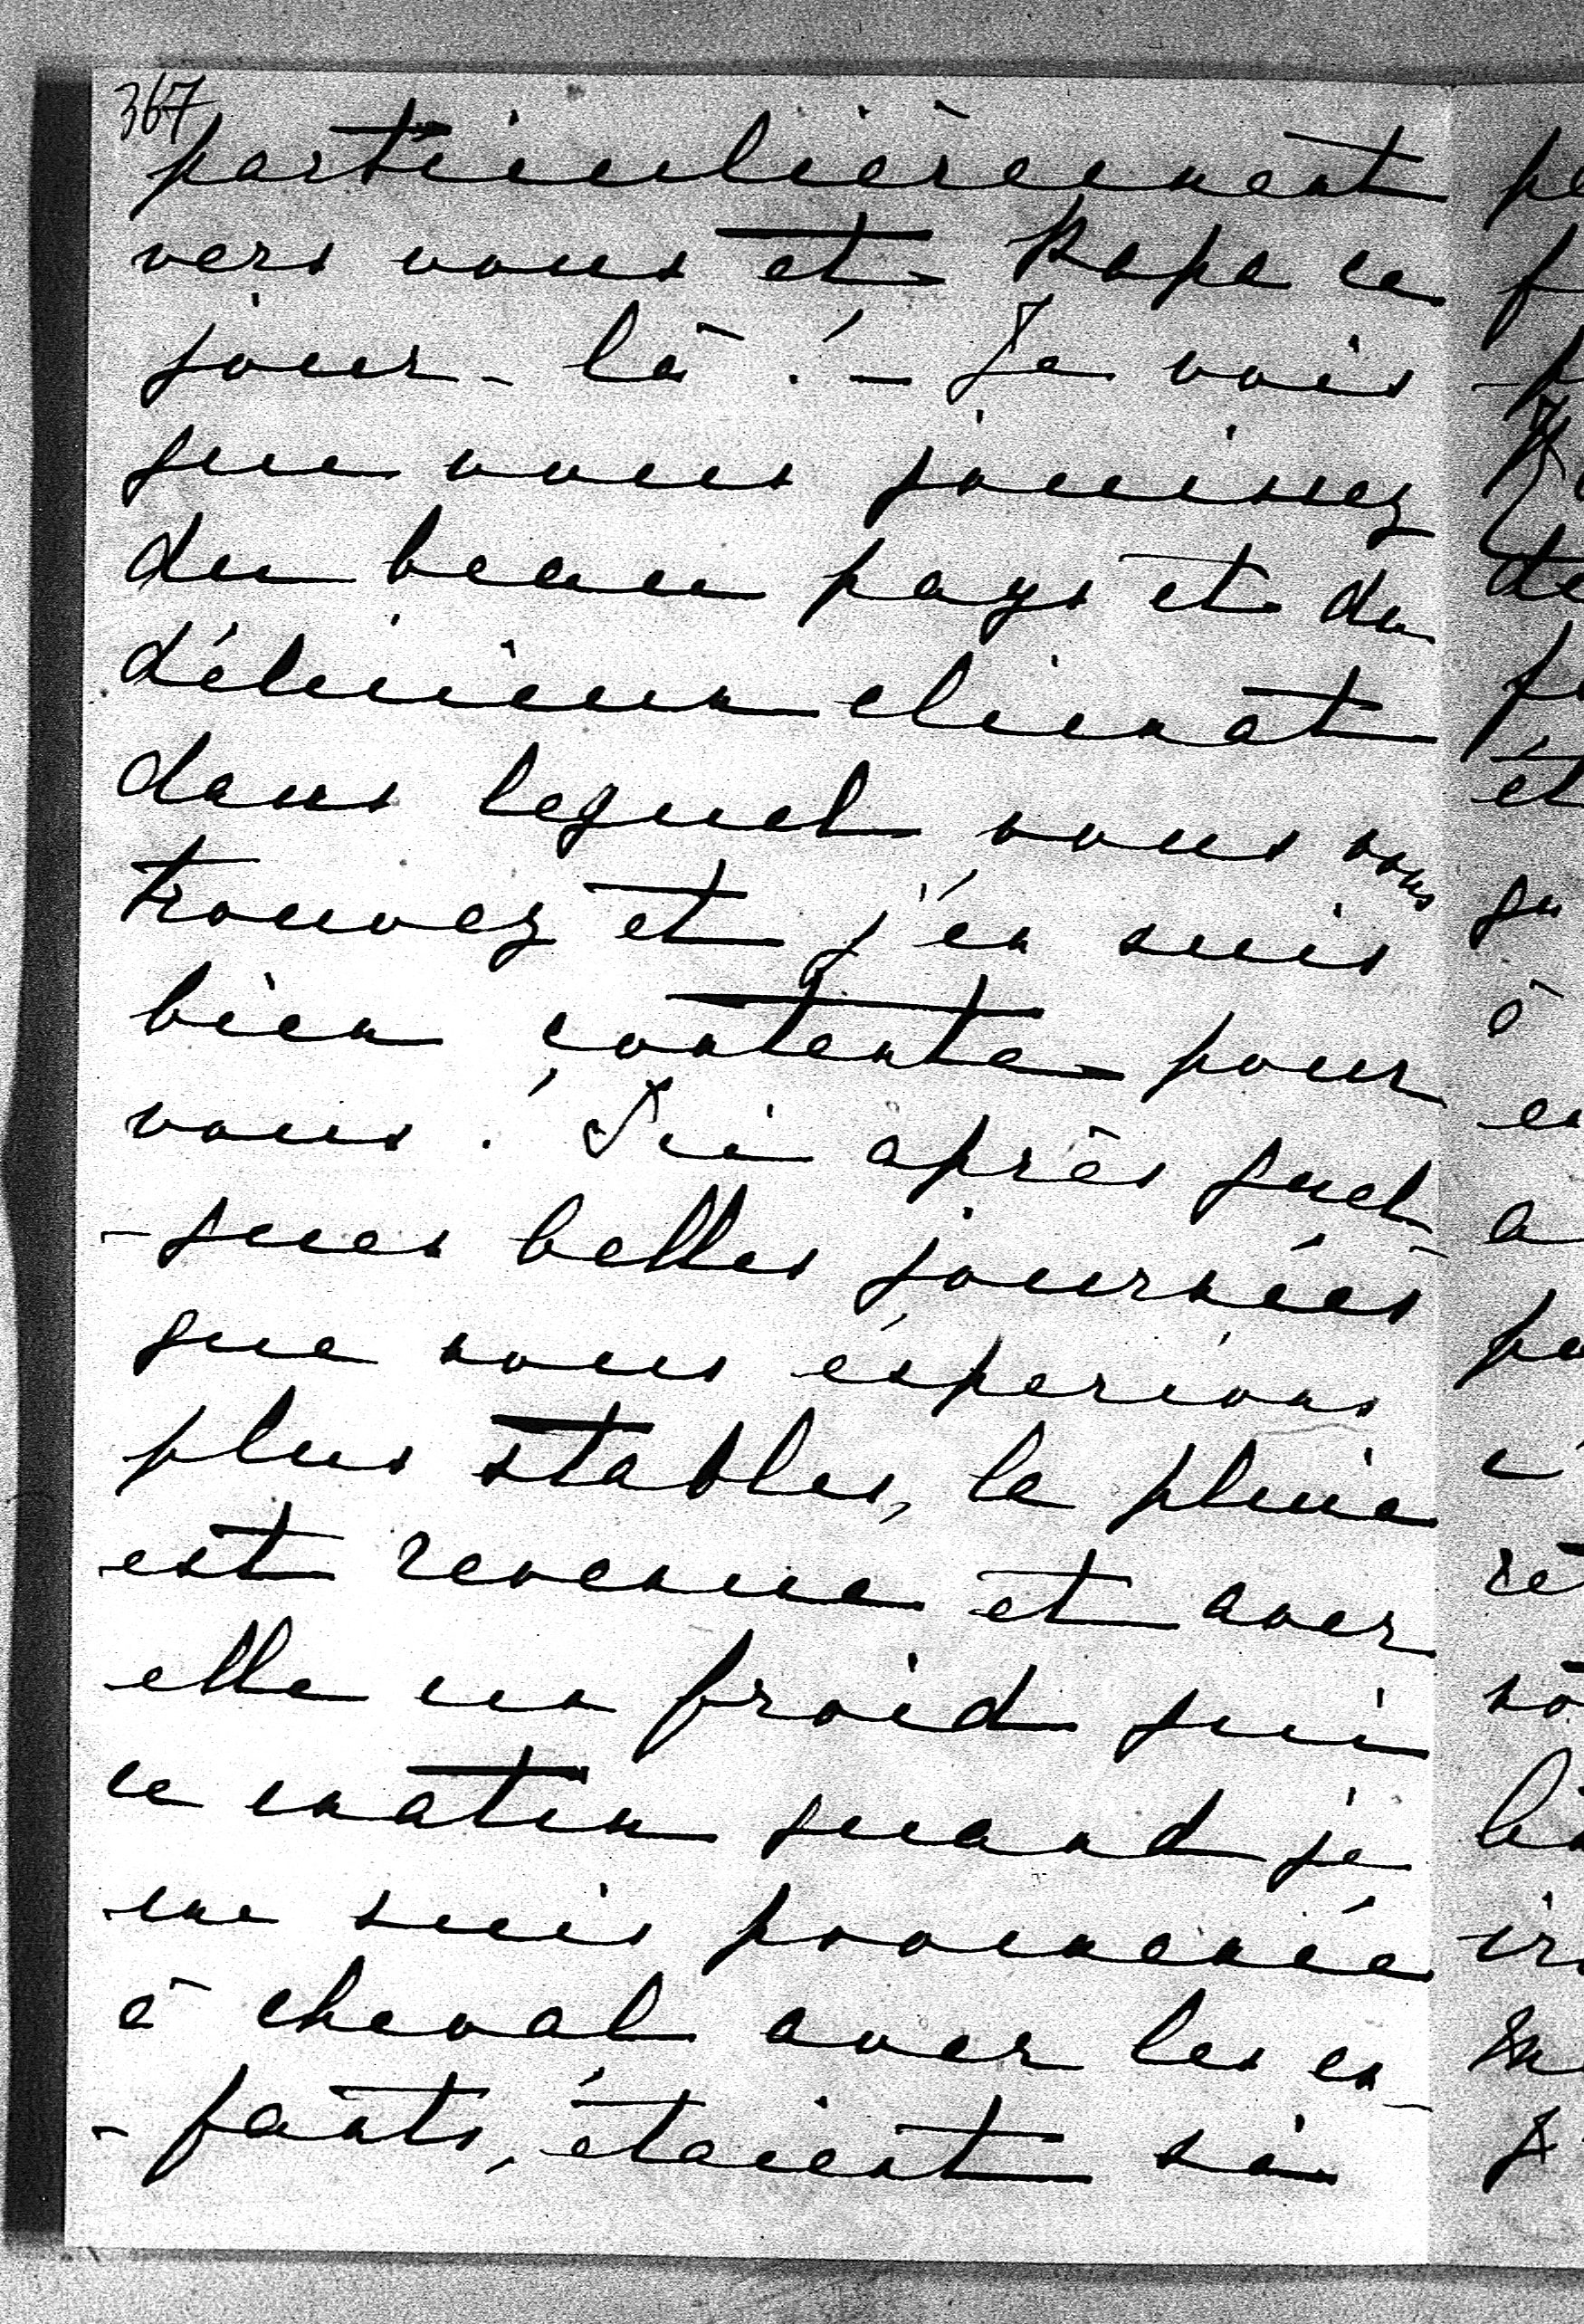 367
particulièrement
vers vous et Papa ce
jour-là! - Je vois
que vous jouissez
du beau pays et du
délicieux climat
dans lequel vous vous
trouvez et j'en suis
bien contente pour
vous! Ici après quel
-ques belles journées
que nous éspérions
plus stables, la pluie
est revenue et avec
elle un froid qui
ce matin quand je
me suis promenée
à cheval avec les en-
-fants, étaient si